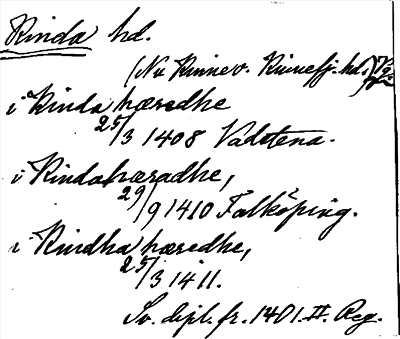 Kinda hd.
(Nu Kinnev. Kinnefj. hd.) Vg.
i Kinda hæredhe
25/3 1408 Vadstena.
i Kindahæradhe,
29/9 1410 Falköping.
i Kindha hæredhe,
25/3 1411.
Sv. dipl. fr. 1401. II. Reg.